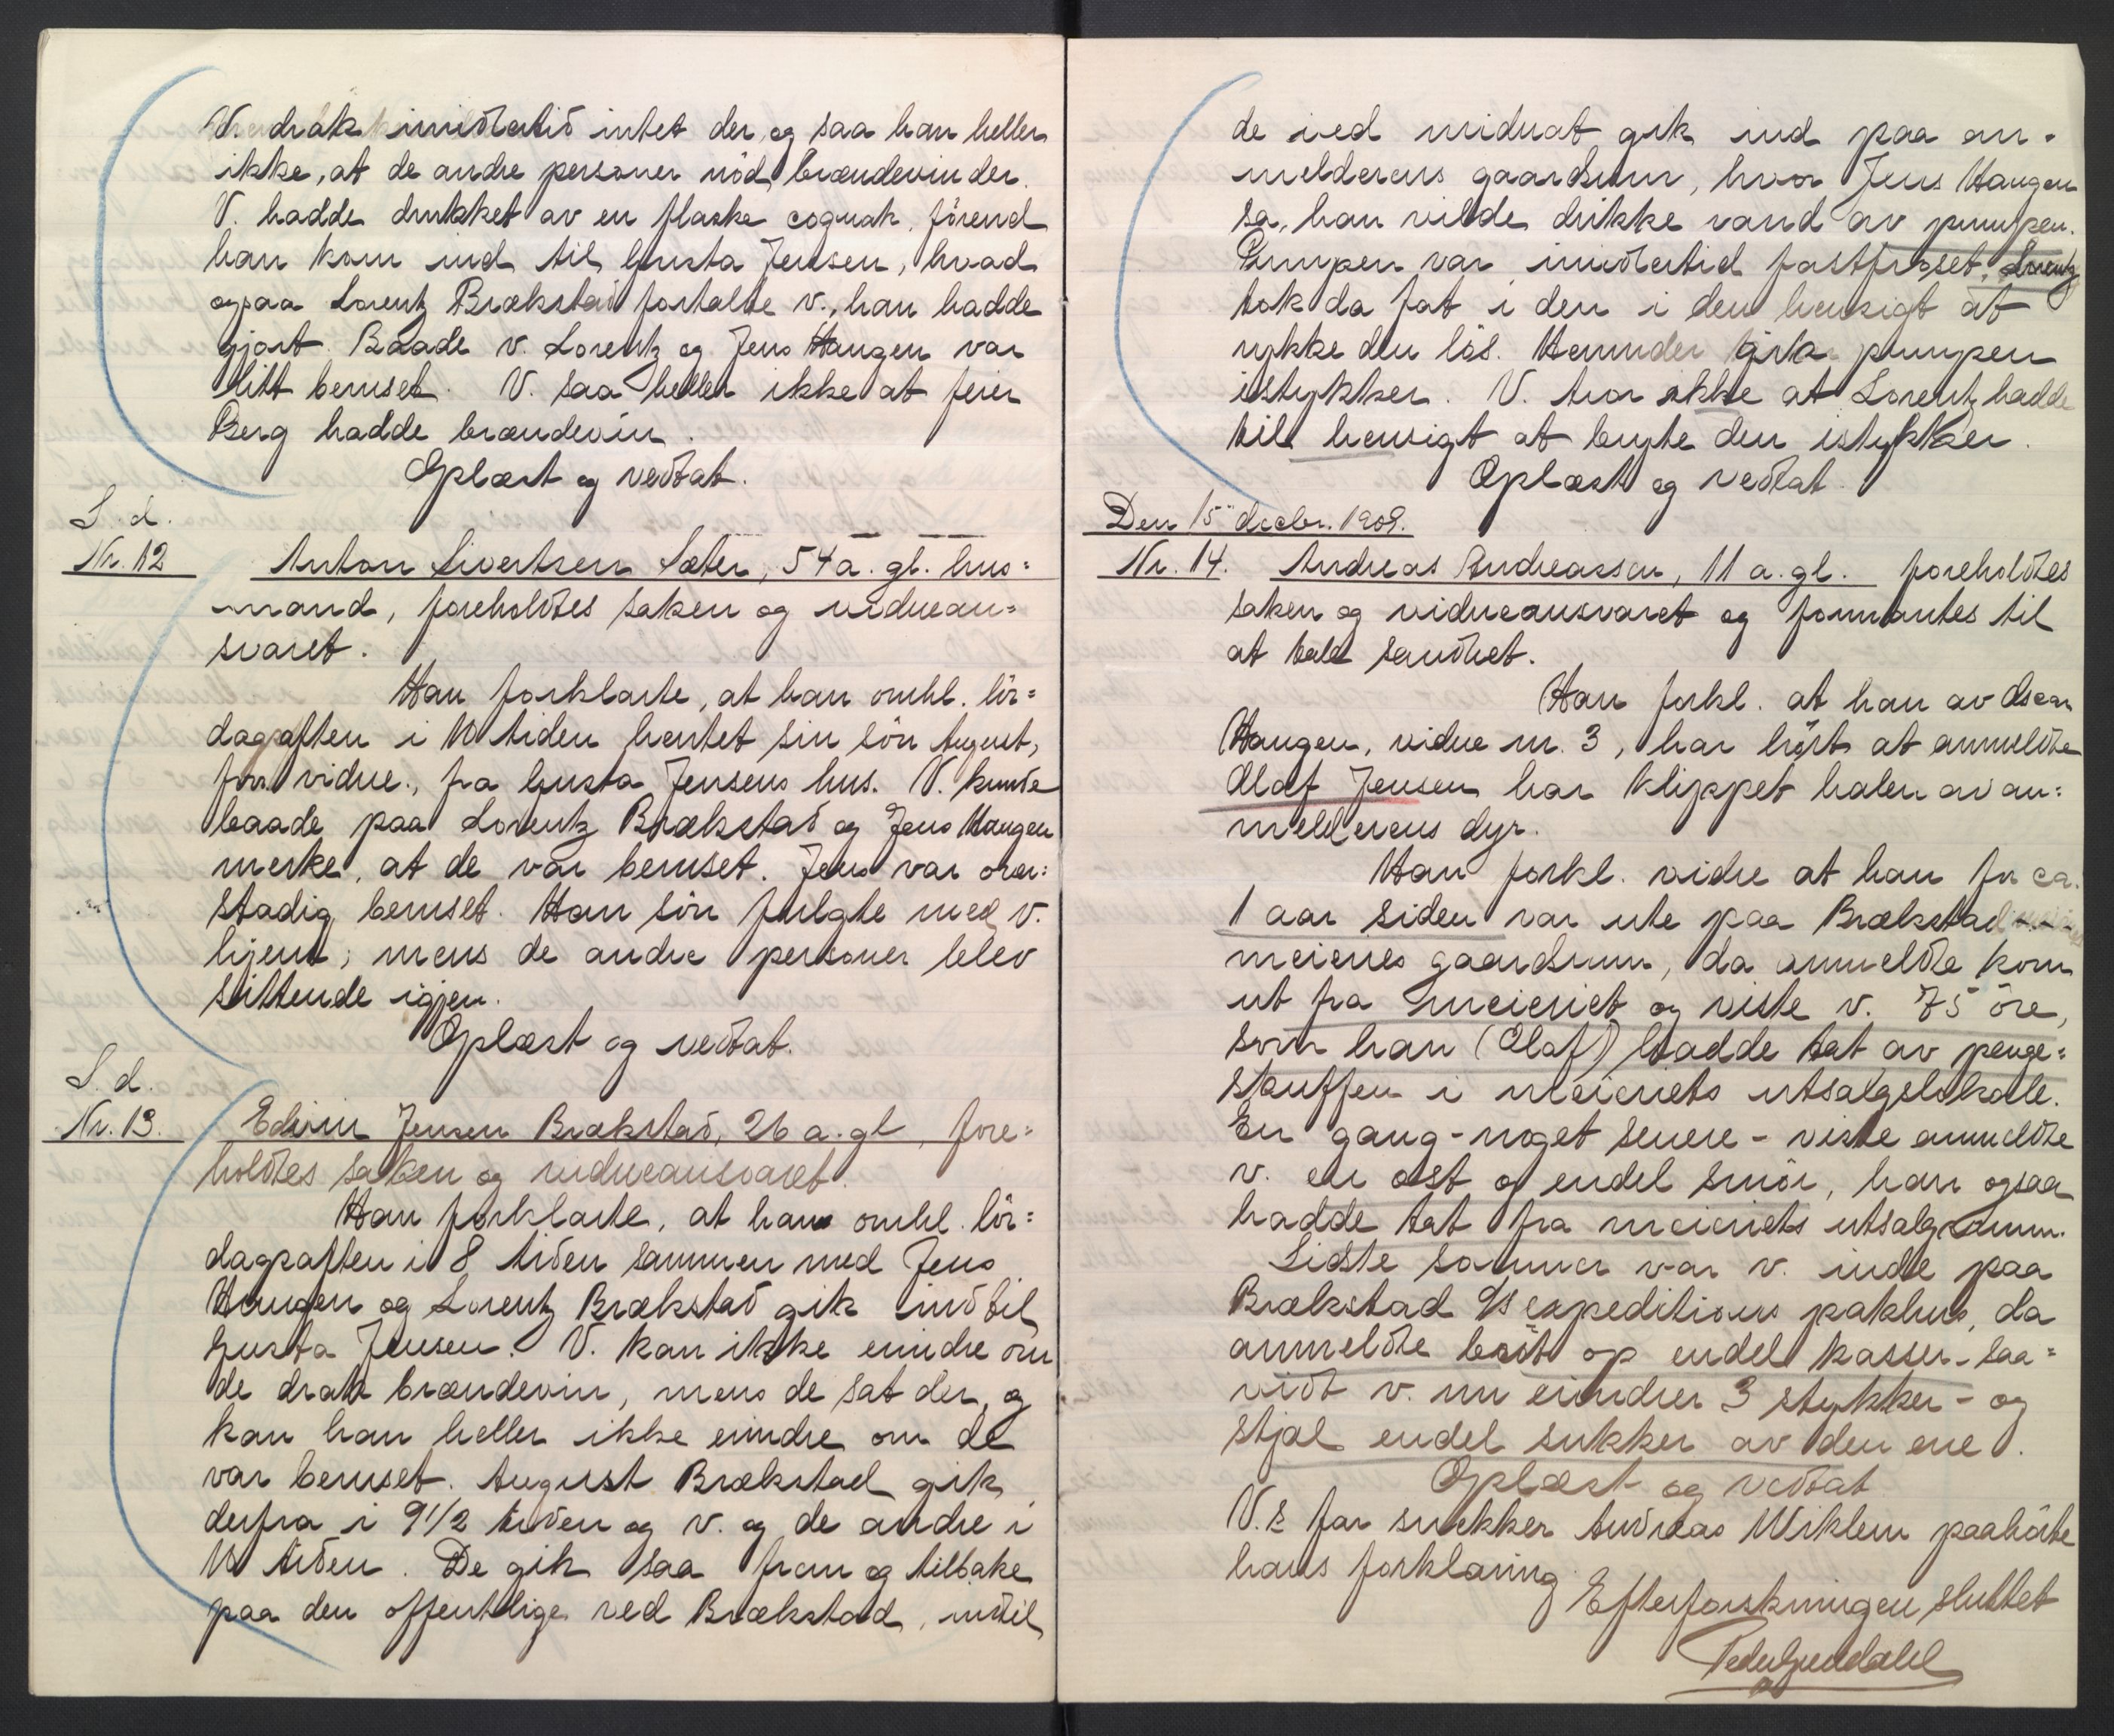 V. drak imidlertid intet der, og saa han heller
ikke, at de andre personer nöd brændevin der.
V. hadde drukket av en flaske cognak, förend
han kom ind til Gusta Jensen, hvad
ogsaa Lorentz Brækstad fortalte v., han hadde
gjort. Baade v. Lorentz og Jens Haugen var
litt beruset. V. saa heller ikke at feier
Berg hadde brændevin.
Oplæst og vedtat.
S. d.
Nr. 12 Anton Sivertsen Sæter, 54 a. gl. hus=
mand, foreholdtes saken og vidnean=
svaret.
Han forklarte, at han omhl. lör=
dagsaften i 10 tiden hentet sin sön August,
forr. vidne, fra Gusta Jensens hus. V. kunde
baade paa Lorentz Brækstad og Jens Haugen
merke, at de var beruset. Jens var over=
stadig beruset. Han sön fulgte med v.
hjem, mens de andre personer blev
sittende igjen.
Oplæst og vedtat.
S. d.
Nr. 13. Edvin Jensen Brækstad, 26 a. gl, fore=
holdtes saken og vidneansvaret.
Han forklarte, at han omhl. lör=
dagsaften i 8 tiden sammen med Jens
Haugen og Lorentz Brækstad gik ind til
Gusta Jensen. V. kan ikke erindre om
de drak brændevin, mens de sat der, og
kan han heller ikke erindre om de
var beruset. August Brækstad gik
derfra i 9 1/2 tiden og v. og de andre i
10 tiden. De gik saa frem og tilbake
paa den offentlige ved Brækstad, indtil
de ved midnat gik ind paa an=
melderens gaardsrum, hvor Jens Haugen
sa, han vilde drikke vand av pumpen.
Pumpen var imidlertid fastfroset. Lorentz
tok da fat i den i den hensigt at
rykke den lös. Herunder gik pumpen
istykker. V. tror ikke at Lorentz hadde
til hensigt at bryte den istykker.
Oplæst og vedtat.
Den 15 decbr. 1909.
Nr. 14. Andreas Andreassen, 11 a. gl. foreholdtes
saken og vidneansvaret og formantes til
at tale sandhet.
Han forkl. at han av Oscar
Haugen, vidne nr. 3, har hört at anmeldte
Olaf Jensen har klippet halen av an=
melderens dyr.
Han forkl. vidre at han for ca.
1 aar siden var ute paa Brækstad
meieries gaardsrum, da anmeldte kom
ut fra meieriet og viste v. 75 öre,
som han (Olaf) hadde tat av penge=
skuffen i meieriets utsalgslokale.
En gang - noget senere - viste anmeldte
v. en ost og endel smör, han ogsaa
hadde tat fra meieriets utsalgsrum.
Sidste sommer var v. inde paa
Brækstad D/S expeditions pakhus, da
anmeldte bröt op endel kasser - saa=
vidt v. nu erindrer 3 stykker - og
stjal endel sukker av den ene.
Oplæst og vedtat
V.s far snekker Andreas Wiklem paahörte
hans forklaring.
Efterforskningen sluttet